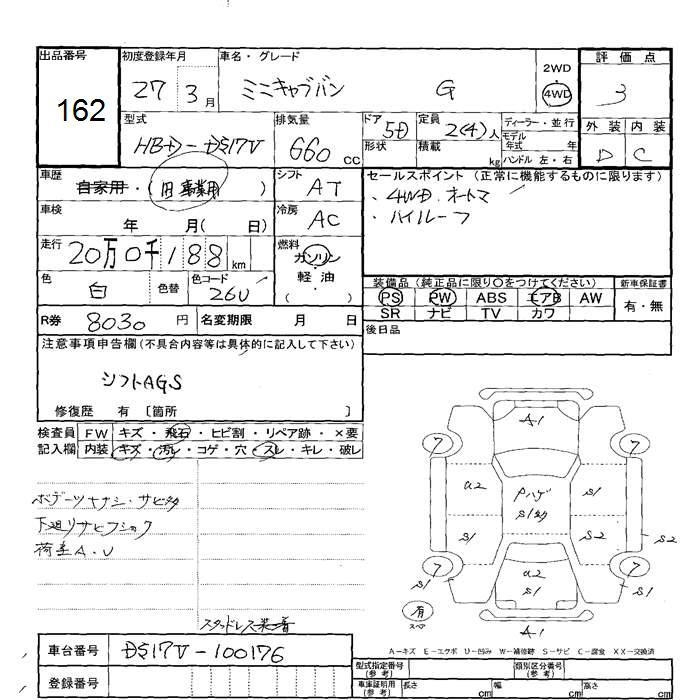 出品番号
162
初度登録年月
27 3月
車名・グレード
ミニキャブバン G
2WD
4WD
評価点
3
型式
HBD-DS17V
排気量
660 cc
ドア 5D
形状
定員 2(4)人
積載 kg
ディーラー・並行
モデル
年式 年
ハンドル 左・右
外装 内装
D C
車歴
自家用・(旧事業用)
シフト AT
セールスポイント (正常に機能するものに限ります)
、4WD.オートマ
、ハイルーフ
車検
年 月( 日)
冷房 AC
走行 20万0千188km
燃料
ガソリン
軽・油
( )
色 白 色替
色コード 26U
装備品(純正品に限り〇をつけてください)
PS PW ABS エアB AW
SR ナビ TV カワ
新車保証書
有・無
R券 8030円
名変期限 月 日
後日品
注意事項申告欄(不具合内容等は具体的に記入して下さい)
シフトAGS
修復歴 有 〔箇所 〕
検査員
記入欄
FW キズ・飛石・ヒビ割・リペア跡・×要
内装 キズ・汚レ・コゲ・穴・スレ・キレ・破レ
下廻リサビ
スタッドレス装着
A1
7 7
a2 Pハゲ S1
S1 S2 S2
7 7
S1 a2 S1 S1
有
スペア
A1
A-キズ E-エクボ U-凹み W-補修跡 S-サビ C-腐食 XX-交換済
車台番号 DS17V-100176
登録番号
型式指定番号
(参考)
類別区分番号
(参考)
車庫証明用
(参考)
長さ cm 幅 cm 高さ cm